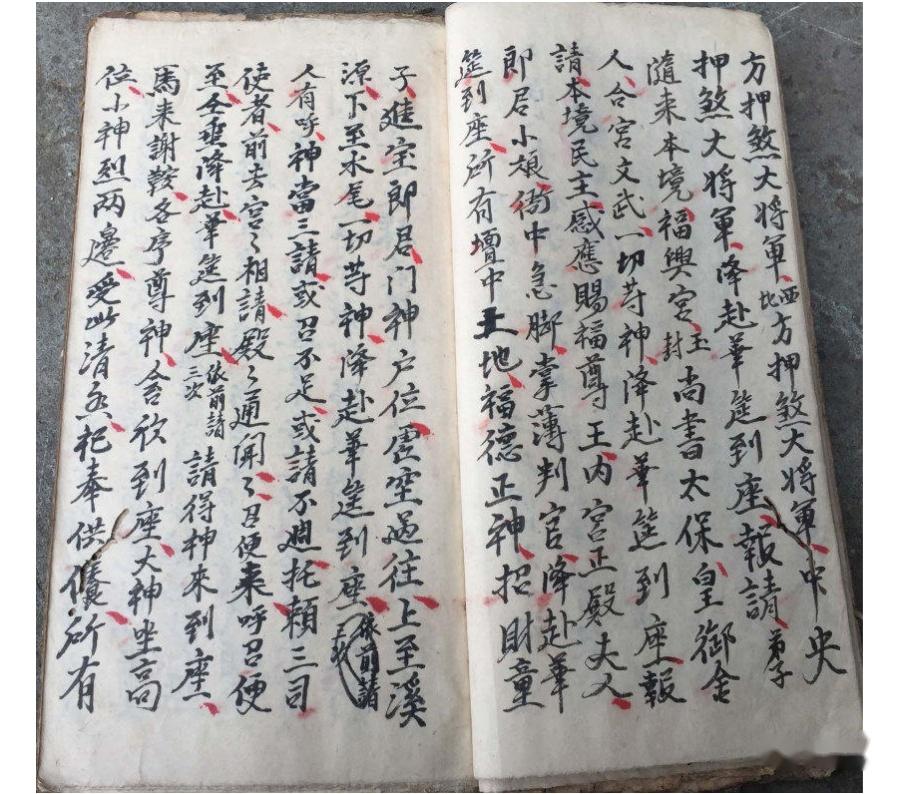 方押煞大將軍西北方押煞大將軍中央
押煞大將軍降赴華筵到座報請弟子
隨來本境福興宮玉封尚書太保皇御舍
人合宮文武一切等神降赴華筵到座報
請本境民主感應賜福尊王內宮正殿夫人
郎君小娘衙中急脚掌薄判官降赴華
筵到座所有壇中土地福德正神招財童
子進宝郎君门神户位虛空過往上至溪
源下至水尾一切等神降赴華筵到座依前請
人有呼神當三請或召不足或請不週托賴三司
使者前去宮々相請殿々通聞々召便來呼召便
至今垂降赴華筵到座依前請三次請得神來到座
馬來謝鞍各序尊神合欣到座大神坐高
位小神烈两邊受此清香祀奉供養所有